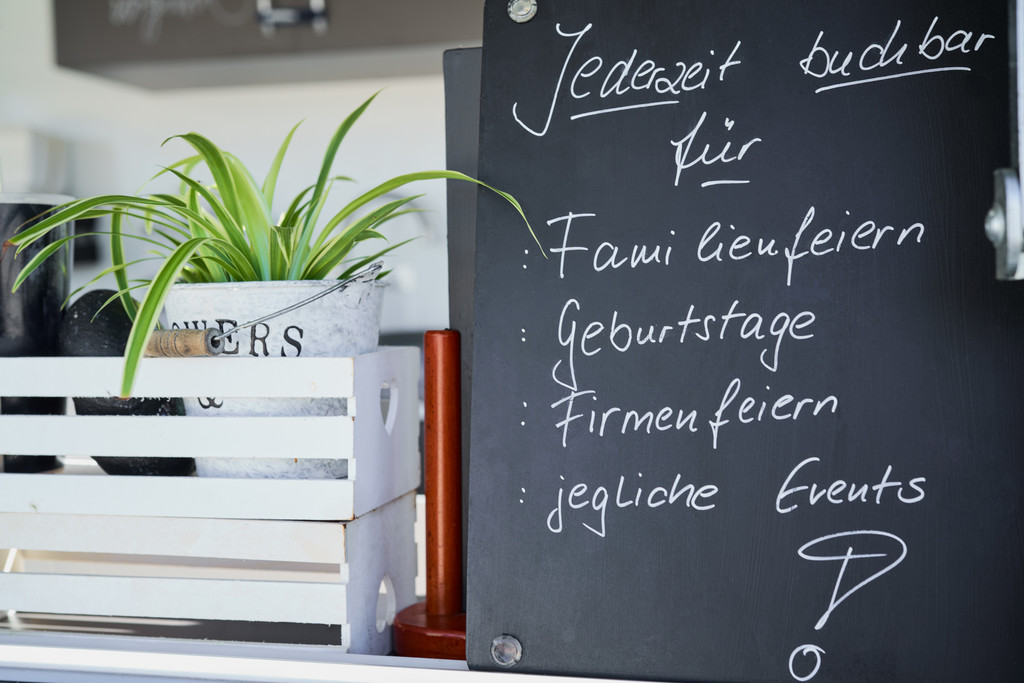 Jederzeit buchbar
für
: Familienfeiern
: Geburtstage
: Firmenfeiern
: jegliche Events
!
WERS
&